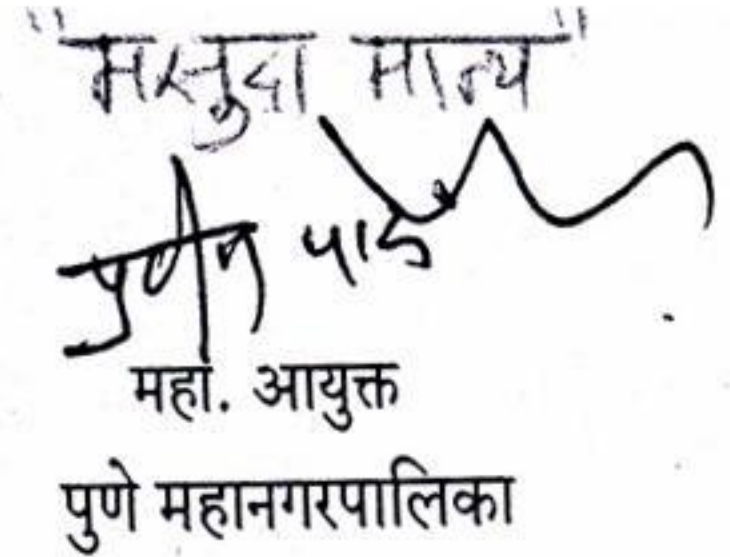 "मसुदा मान्य"
महा. आयुक्त
पुणे महानगरपालिका